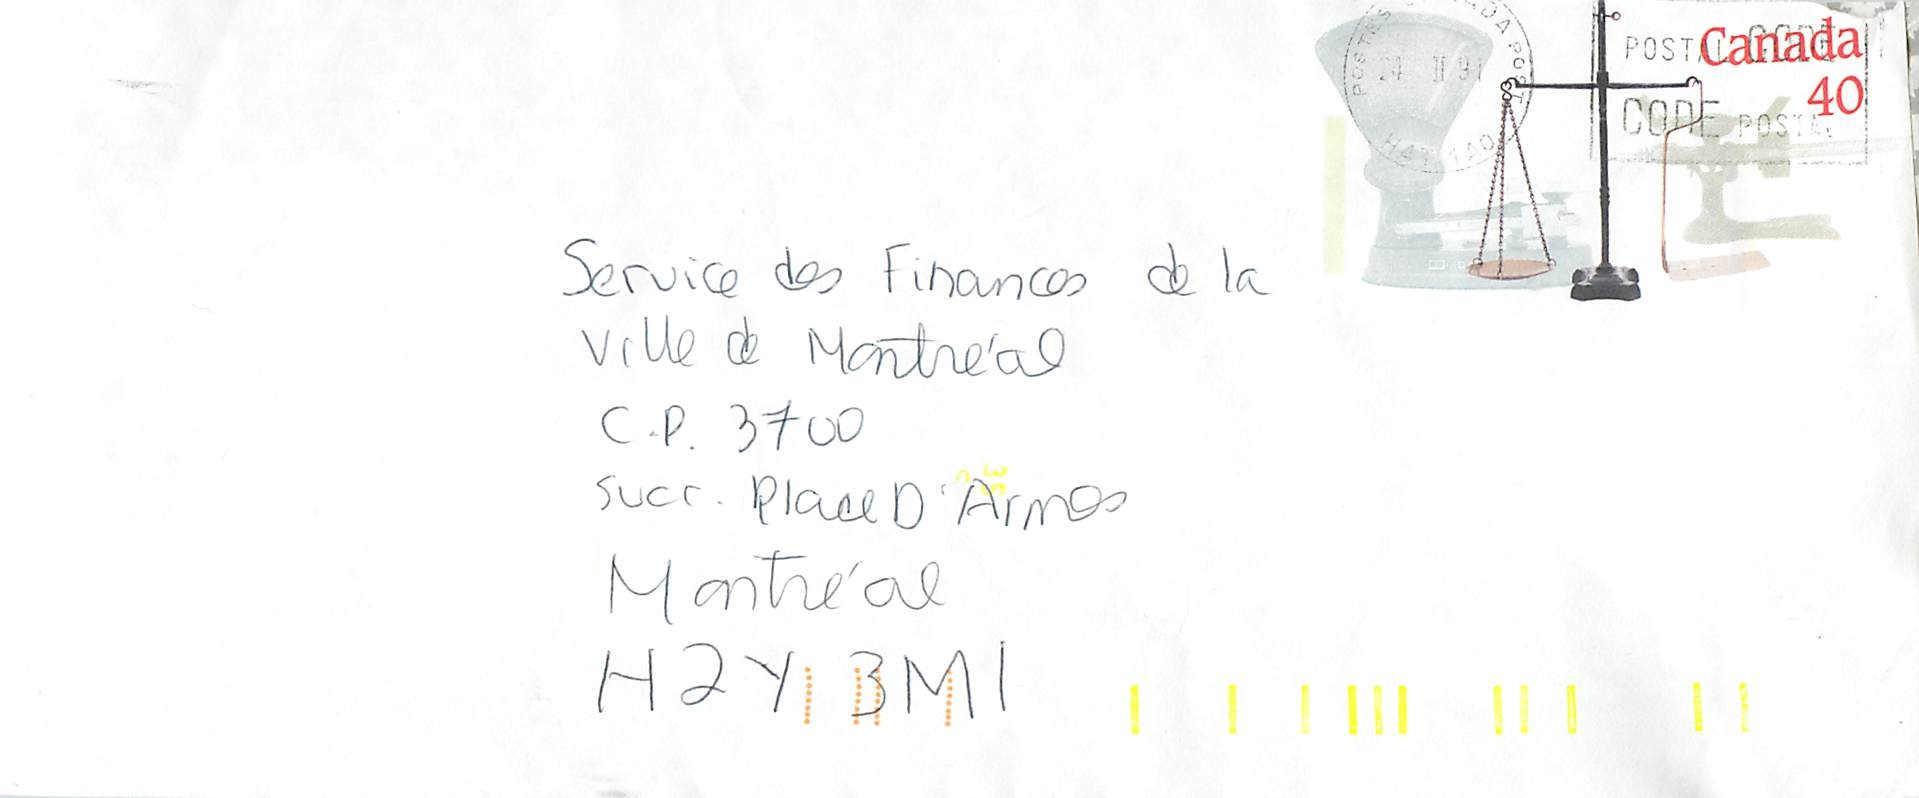 POSTES CANADA POST
24 II 91
H4T 1A0
POSTAL CODE
CODE POSTAL
Canada
40
Service des Finances de la
Ville de Montréal
C.P. 3700
succ. Place D'Armes
Montréal
H2Y 3M1